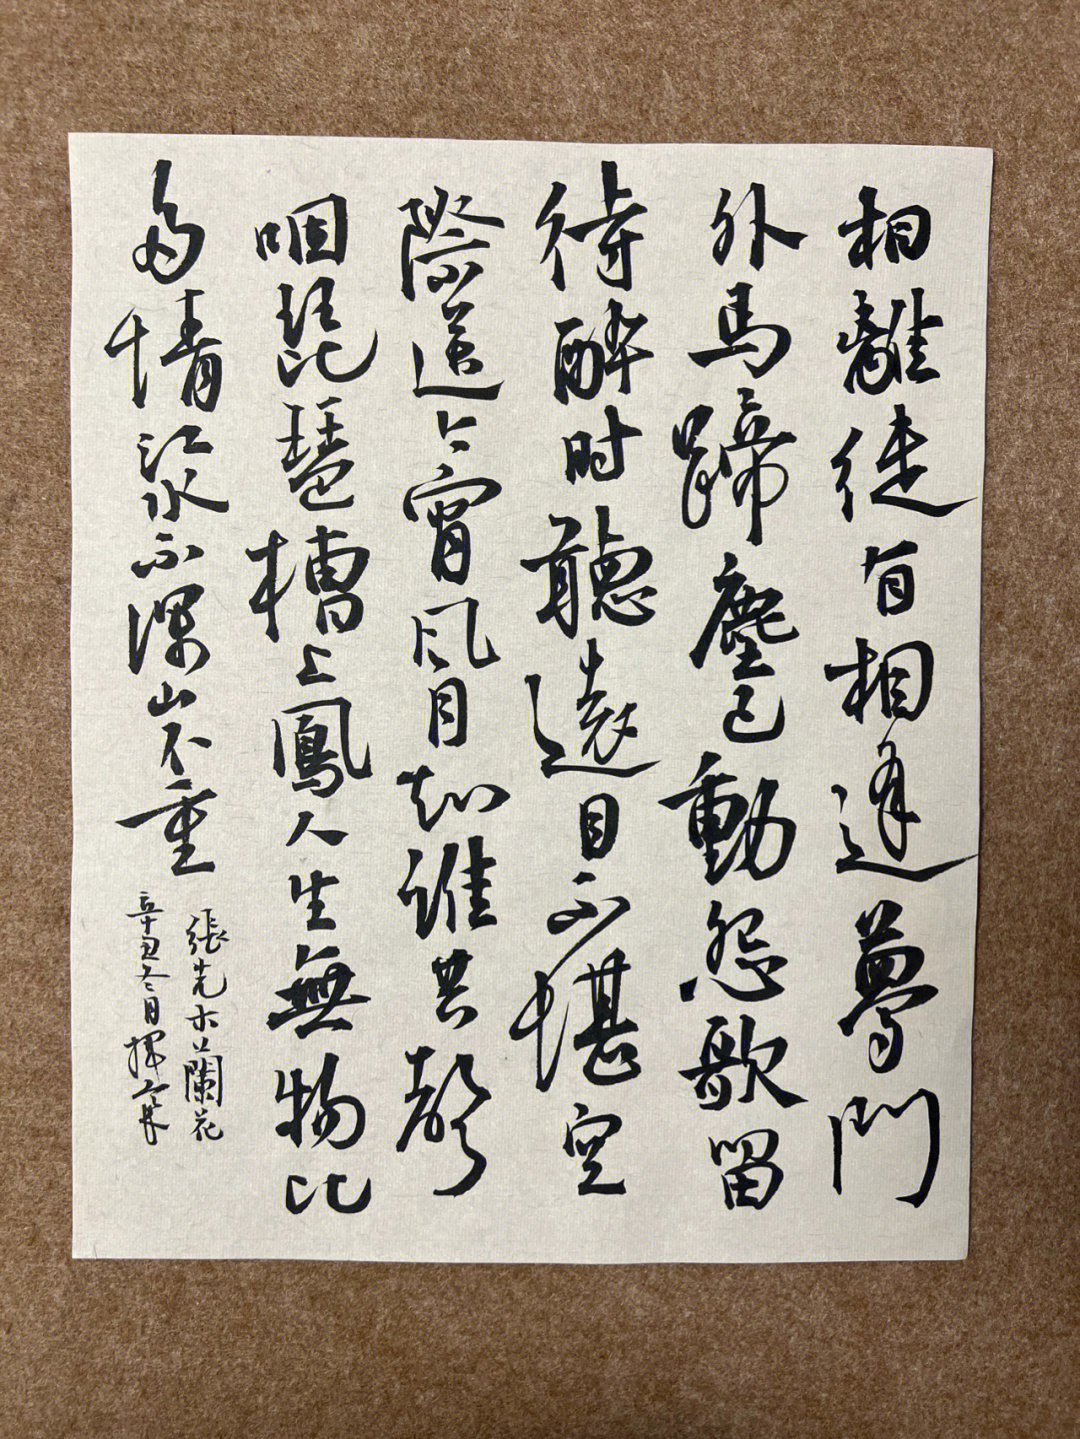 相離徒有相逢夢門
外馬蹄塵已動怨歌留
待醉时聽遠目不堪空
際送今宵风月知誰共聲
咽琵琶槽上鳳人生無物比
多情江水不深山不重
張先木蘭花
辛丑冬月揮